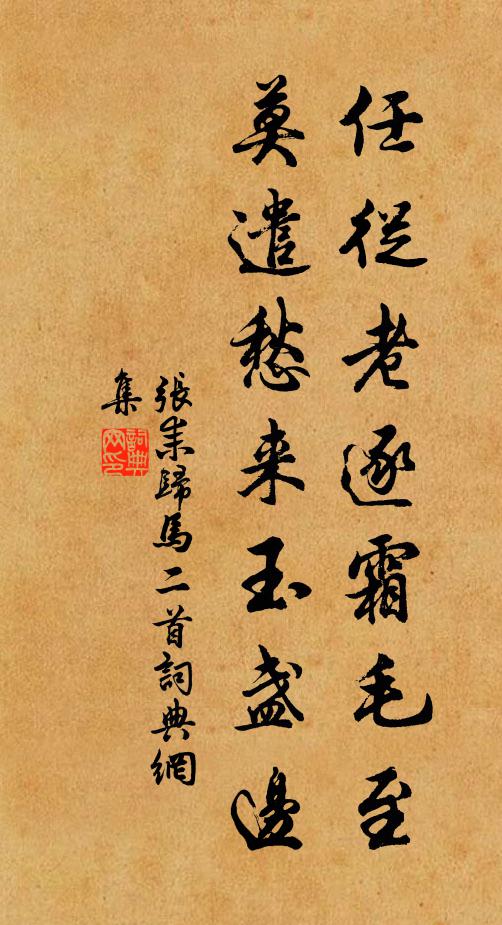 任從老逐霜毛至
莫遣愁来玉盏邊
張耒歸馬二首詞典網
集
詞典網印